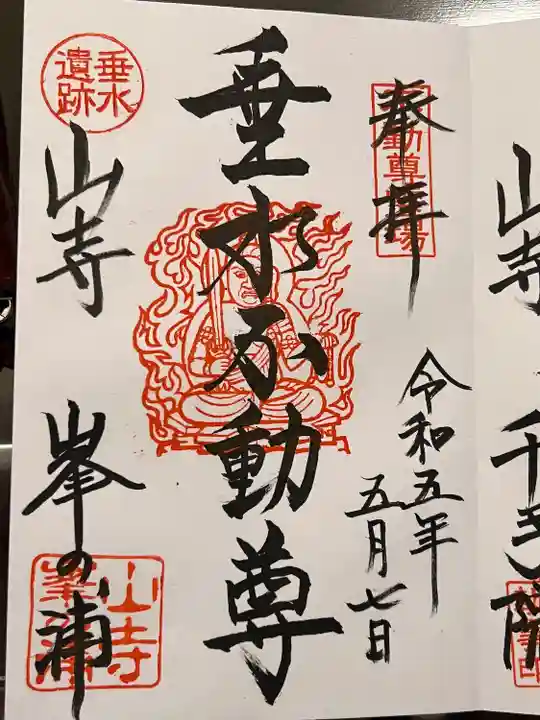 奉拝
不動尊霊場
令和五年
五月七日
垂水不動尊
垂水
遺跡
山寺 峯の浦
山寺
峯浦
山寺 千手院